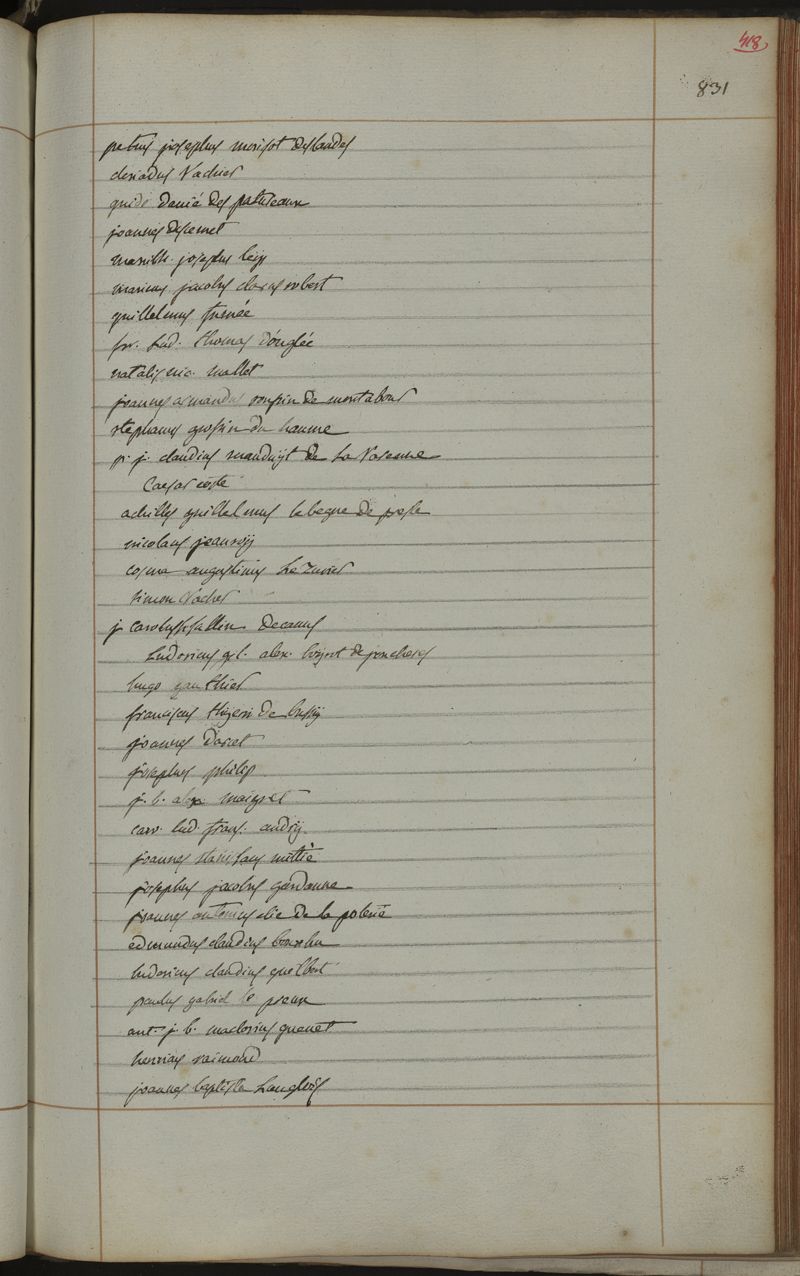 418
831
petrus josephus morisot deslandes
claudius Vacher
guido Danié des patureaux
joannes Descemet
josephus
jacobus clarus robert
guillelmus
fr. Lud. thomas d'onglée
natalis nic. mallet
joannes armandus roussin de montabour
stephanus grossin du haume
p. j. claudius mauduyt de La Varenne
Caesar coste
achilles guillelmus le begue de presle
nicolaus jeanroy
cosma augustinus
simon Vacher
j carolus h. sallin. Decanus
Ludovicus alex. de joncheres
hugo gauthier
franciscus thiery de bussy
joannes Darcet
josephus philip
j. b. alex maigret
car. lud. franç. andry
joannes stanislaus mittié
josephus jacobus gardanne
joannes antonius elie de la poterie
edmundus claudius bourru
ludovicus claudius guilbert
paulus gabriel le preux
ant. j. b. maclovius guenet
henricus raimond
joannes baptista Langlois